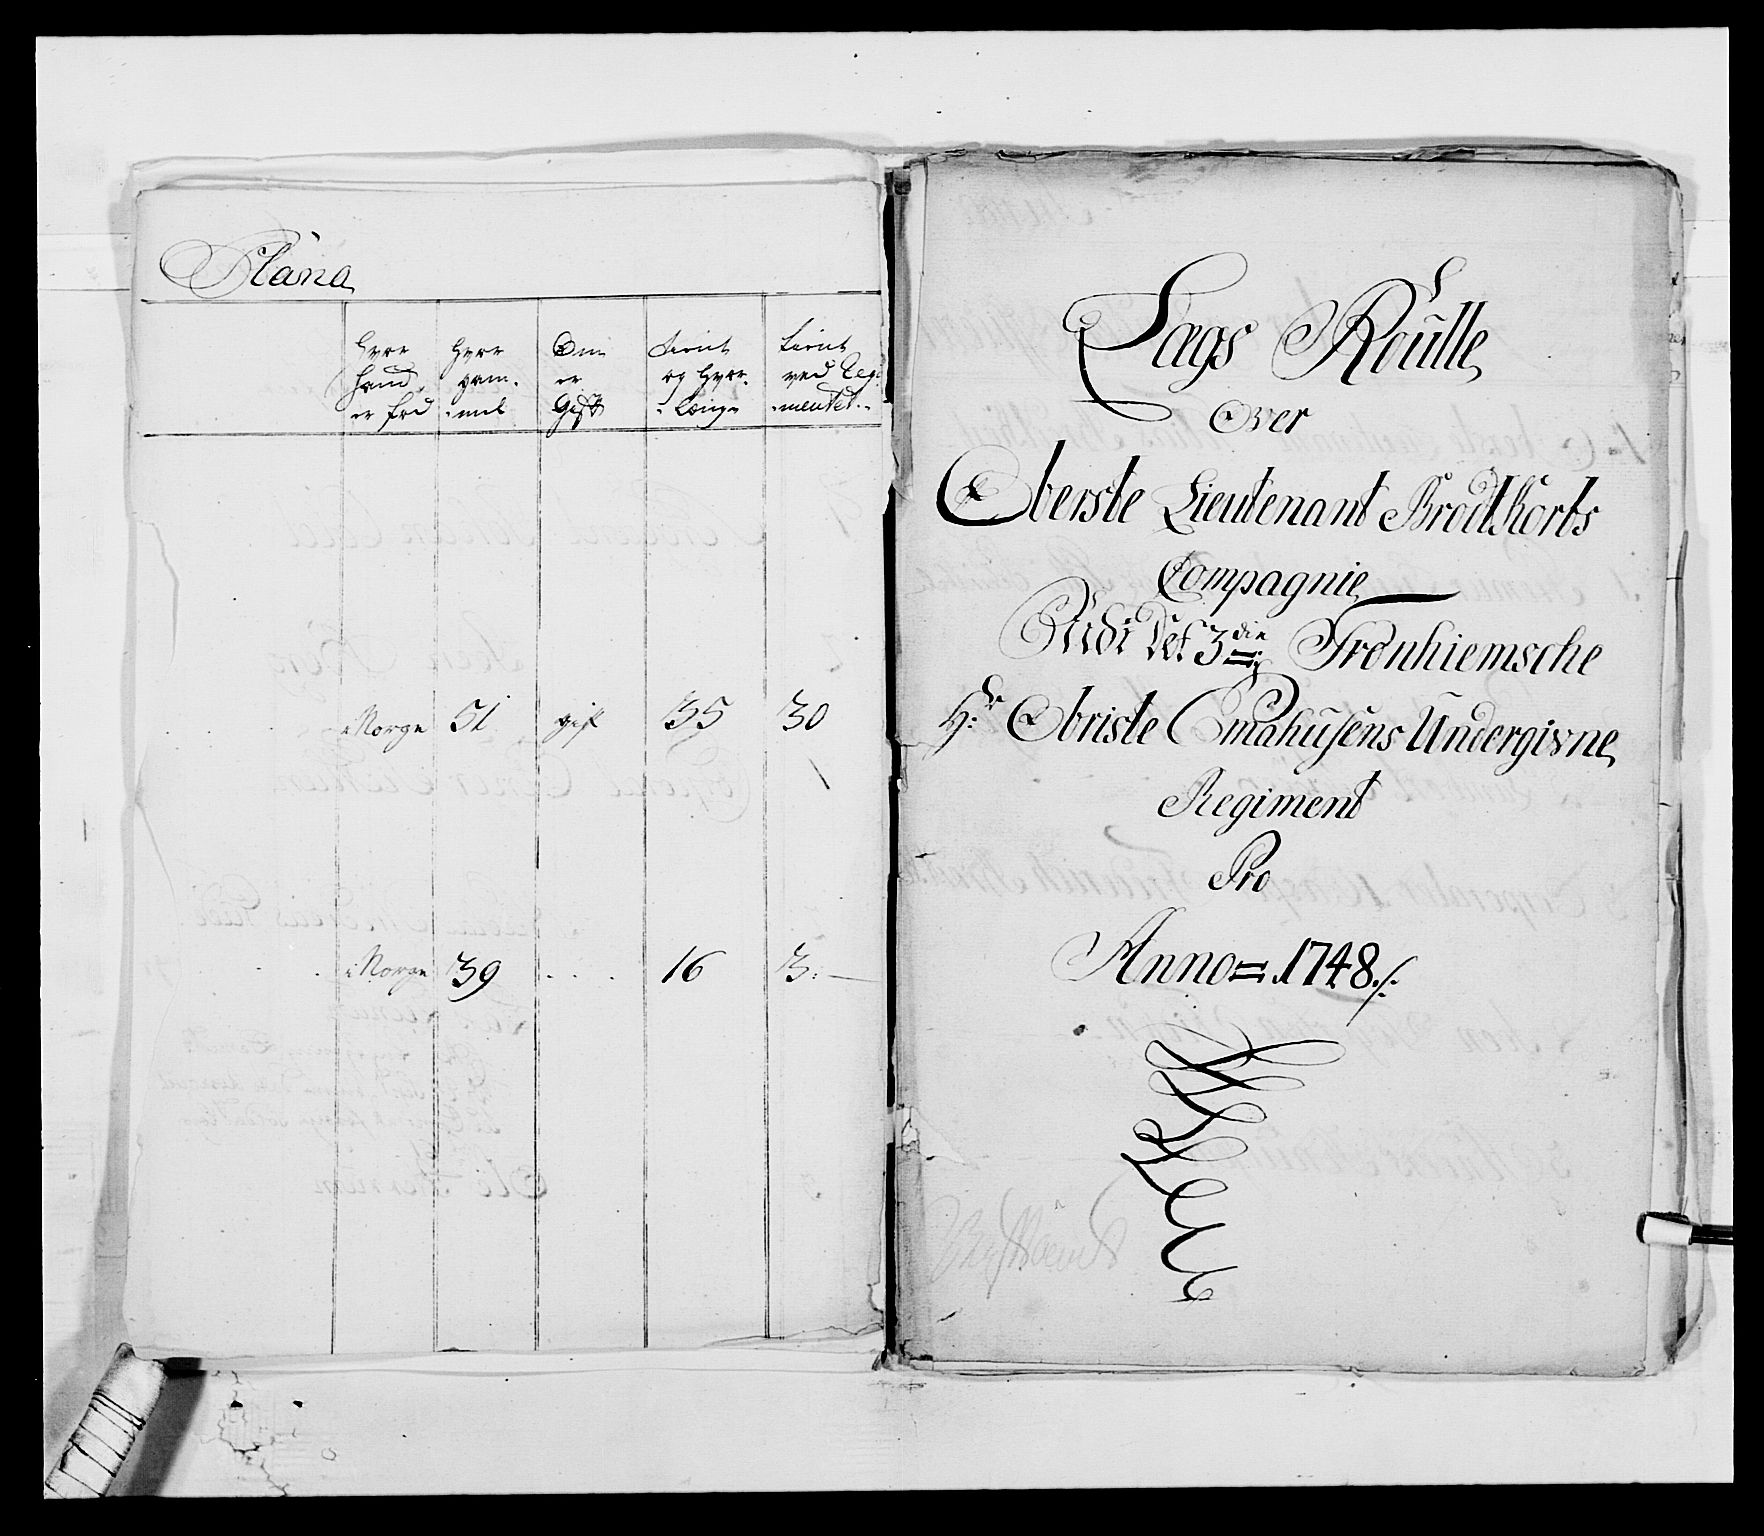 Plana
Hvor Hand er fød
Hvor gam-mel
Om er Gift
Tient og Hvor Længe
Tient ved Regi-mentet
i Norge 51 gift 35 30
i Norge 39 . . . 16 3:
Lægs Roulle
Over
Oberste Lieutenant Brodtkorbs
Compagnie
Udi Det 3die Tronhiemsche
Hr: Obriste Emahusens Undergivne
Regiment
Pro
Anno= 1748./.